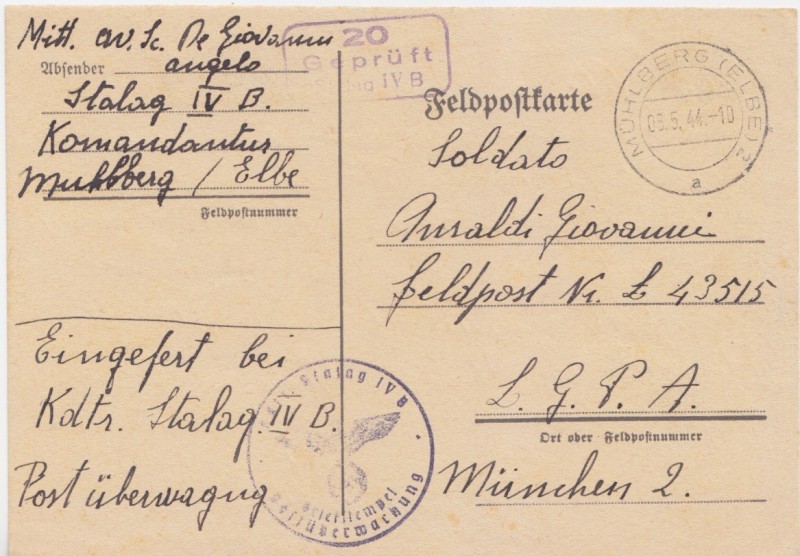 Mitt. av. Sc. De Giovanni
Absender angelo
Stalag IV B.
Komandantur
Muhlberg / Elbe
Feldpostnummer
20
Geprüft
Stalag IV B
Feldpostkarte
MÜHLBERG (ELBE) 2
03.5.44.-10
a
Soldato
Ansaldi Giovanni
feldpost Nr. L 43515
L. G. P. A.
Ort oder Feldpostnummer
München 2.
Eingefert bei
Kdtr. Stalag IV B.
Post überwagug
Stalag IV B
Briefstempel
Postüberwachung